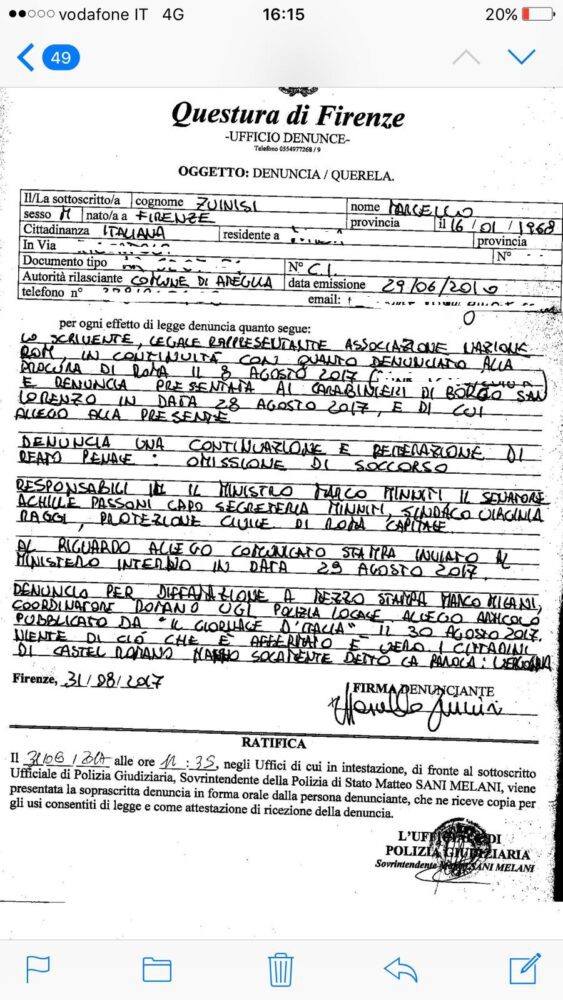 vodafone IT 4G 16:15 20%
49
Questura di Firenze
-UFFICIO DENUNCE-
Telefono 0554977268 / 9
OGGETTO: DENUNCIA / QUERELA.
Il/La sottoscritto/a cognome ZUINISI nome MARCELLO
sesso M nato/a a FIRENZE provincia il 16/01/1968
Cittadinanza ITALIANA residente a provincia
In Via N°
Documento tipo N° C.I.
Autorità rilasciante COMUNE DI data emissione 29/06/2010
telefono n° email:
per ogni effetto di legge denuncia quanto segue:
LO SCRIVENTE, LEGALE RAPPRESENTANTE ASSOCIAZIONE NAZIONE
ROM, IN CONTINUITÀ CON QUANTO DENUNCIATO ALLA
PROCURA DI ROMA IL 8 AGOSTO 2017
E DENUNCIA PRESENTATA AI CARABINIERI DI BORGO SAN
LORENZO IN DATA 28 AGOSTO 2017, E DI CUI
ALLEGO ALLA PRESENTE
DENUNCIA UNA CONTINUAZIONE E REITERAZIONE DI
REATO PENALE: OMISSIONE DI SOCCORSO
RESPONSABILI IL MINISTRO MARCO MINNITI IL SENATORE
ACHILLE PASSONI CAPO SEGRETERIA MINNITI, SINDACO VIRGINIA
RAGGI, PROTEZIONE CIVILE DI ROMA CAPITALE
AL RIGUARDO ALLEGO COMUNICATO STAMPA INVIATO AL
MINISTERO INTERNO IN DATA 29 AGOSTO 2017.
DENUNCIO PER DIFFAMAZIONE A MEZZO STAMPA MARCO MILANI,
COORDINATORE ROMANO UGL POLIZIA LOCALE ALLEGO ARTICOLO
PUBBLICATO DA "IL GIORNALE D'ITALIA" IL 30 AGOSTO 2017.
NIENTE DI CIÒ CHE È AFFERMATO È VERO I CITTADINI
DI CASTEL ROMANO HANNO SOLAMENTE DETTO LA PAROLA: VERGOGNA
Firenze, 31/08/2017 FIRMA DENUNCIANTE
RATIFICA
Il alle ore 11:35, negli Uffici di cui in intestazione, di fronte al sottoscritto
Ufficiale di Polizia Giudiziaria, Sovrintendente della Polizia di Stato Matteo SANI MELANI, viene
presentata la soprascritta denuncia in forma orale dalla persona denunciante, che ne riceve copia per
gli usi consentiti di legge e come attestazione di ricezione della denuncia.
L'UFFICIALE DI
POLIZIA GIUDIZIARIA
Sovrintendente Matteo SANI MELANI